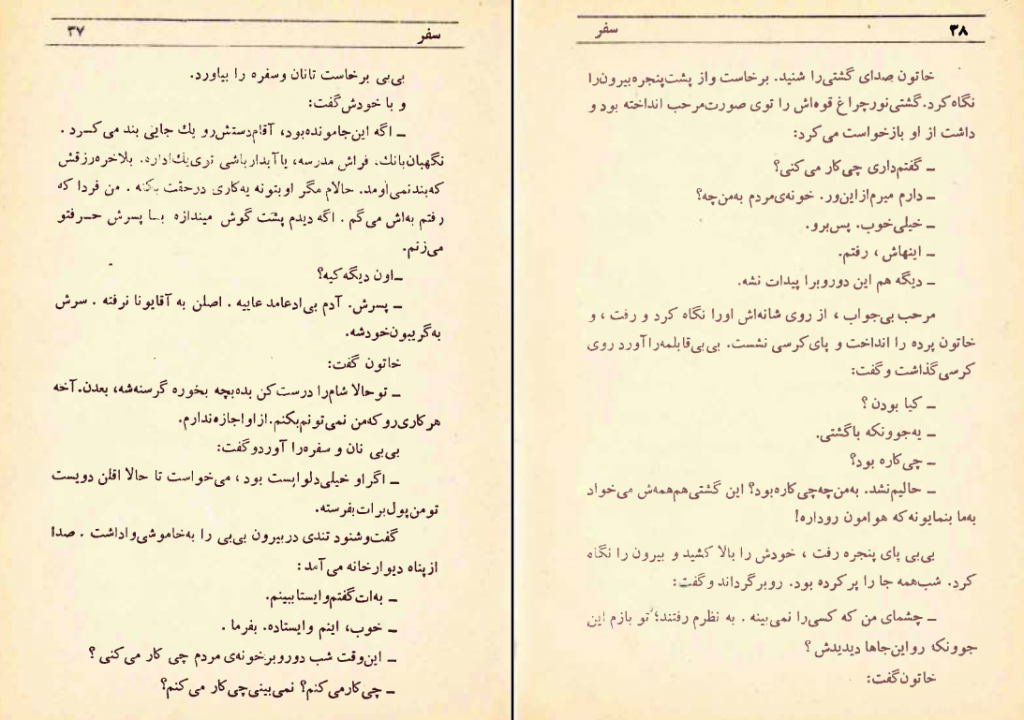 سفر ۳۷
بی‌بی برخاست تا نان و سفره را بیاورد.
و با خودش گفت:
ــ اگه این‌جا مونده بود، آقام دستش‌رو یك جایی بند می‌کرد.
نگهبان بانك، فراش مدرسه، یا آبدارباشی توی یك اداره. بلاخره رزقش
که بند نمی‌اومد. حالام مگر او بتونه یه کاری در حقت بکنه. من فردا که
رفتم به‌اش می‌گم. اگه دیدم پشت گوش میندازه با پسرش حرفتو
می‌زنم.
ــ اون دیگه کیه؟
ــ پسرش. آدم بی‌ادعامدعاییه. اصلن به آقایونا نرفته. سرش
به گریبون خودشه.
خاتون گفت:
ــ تو حالا شام‌را درست کن بده بچه بخوره گرسنه‌شه، بعدن. آخه
هرکاری‌رو که من نمی‌تونم بکنم. از او اجازه ندارم.
بی‌بی نان و سفره را آورد و گفت:
ــ اگر او خیلی دلواپست بود، می‌خواست تا حالا اقلن دویست
تومن پول برات بفرسته.
گفت‌وشنود تندی در بیرون بی‌بی را به خاموشی واداشت. صدا
از پناه دیوار خانه می‌آمد:
ــ به‌ات گفتم وایسا ببینم.
ــ خوب، اینم وایستاده. بفرما.
ــ این‌وقت شب دور و بر خونه‌ی مردم چی کار می‌کنی؟
ــ چی‌کار می‌کنم؟ نمی‌بینی چی‌کار می‌کنم؟
۳۸ سفر
خاتون صدای گشتی را شنید. برخاست و از پشت پنجره بیرون را
نگاه کرد. گشتی نور چراغ قوه‌اش را توی صورت مرحب انداخته بود و
داشت از او بازخواست می‌کرد:
ــ گفتم داری چی‌کار می‌کنی؟
ــ دارم میرم از این‌ور. خونه‌ی مردم به من چه؟
ــ خیلی خوب. پس برو.
ــ اینهاش، رفتم.
ــ دیگه هم این دور و برا پیدات نشه.
مرحب بی‌جواب، از روی شانه‌اش اورا نگاه کرد و رفت، و
خاتون پرده را انداخت و پای کرسی نشست. بی‌بی قابلمه را آورد روی
کرسی گذاشت و گفت:
ــ کیا بودن؟
ــ یه جوونکه با گشتی.
ــ چی‌کاره بود؟
ــ حالیم نشد. به من چه چی‌کاره بود؟ این گشتی هم همه‌ش می‌خواد
به ما بنمایونه که هوامون رو داره!
بی‌بی پای پنجره رفت، خودش را بالا کشید و بیرون را نگاه
کرد. شب همه جا را پر کرده بود. رو برگرداند و گفت:
ــ چشمای من که کسی را نمی‌بینه. به نظرم رفتند؛ تو بازم این
جوونکه رو این‌جاها دیدیدش؟
خاتون گفت: